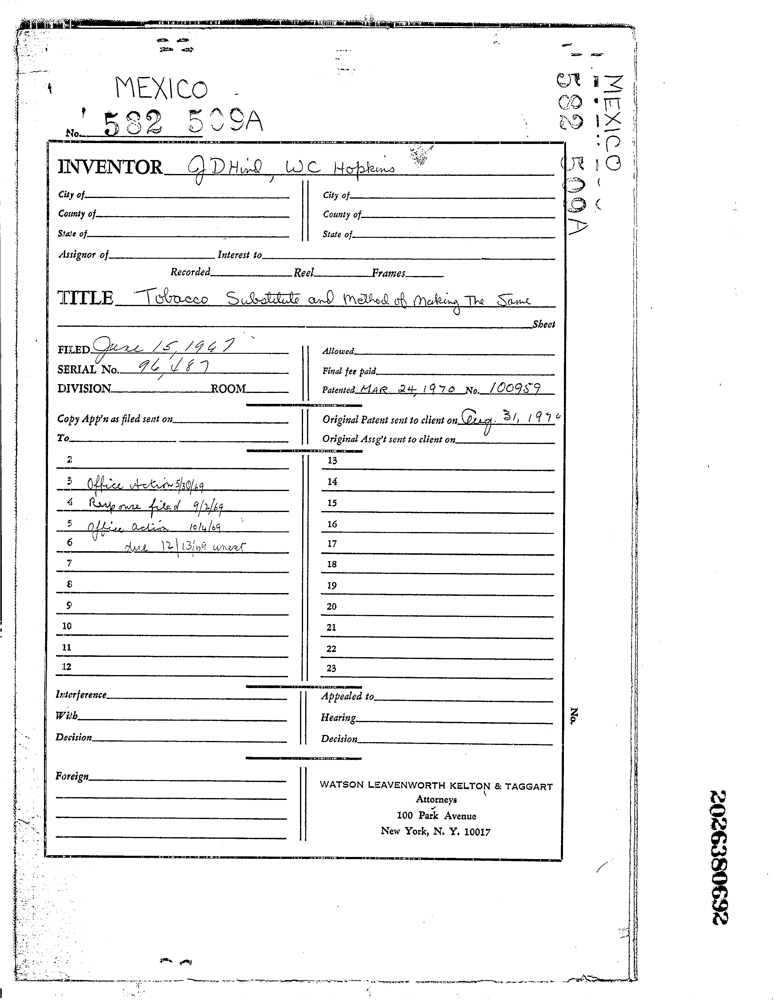 MEXICO
No. 582 509A
MEXICO
582 509A
INVENTOR J D Hind, W C Hopkins
City of
County of
State of
City of
County of
State of
Assignor of Interest to
Recorded Reel Frames
TITLE Tobacco Substitute and Method of Making The Same
Sheet
FILED June 15, 1967
SERIAL No. 96,487
DIVISION ROOM
Allowed
Final fee paid
Patented MAR. 24, 1970 No. 100959
Copy App'n as filed sent on
To
Original Patent sent to client on Aug. 31, 1970
Original Assg't sent to client on
2
3 Office Action 5/30/69
4 Response filed 9/2/69
5 Office action 10/4/69
6 due 12/13/69
7
8
9
10
11
12
13
14
15
16
17
18
19
20
21
22
23
Interference
With
Decision
Appealed to
Hearing
Decision
No.
Foreign
WATSON LEAVENWORTH KELTON & TAGGART
Attorneys
100 Park Avenue
New York, N. Y. 10017
2026380692